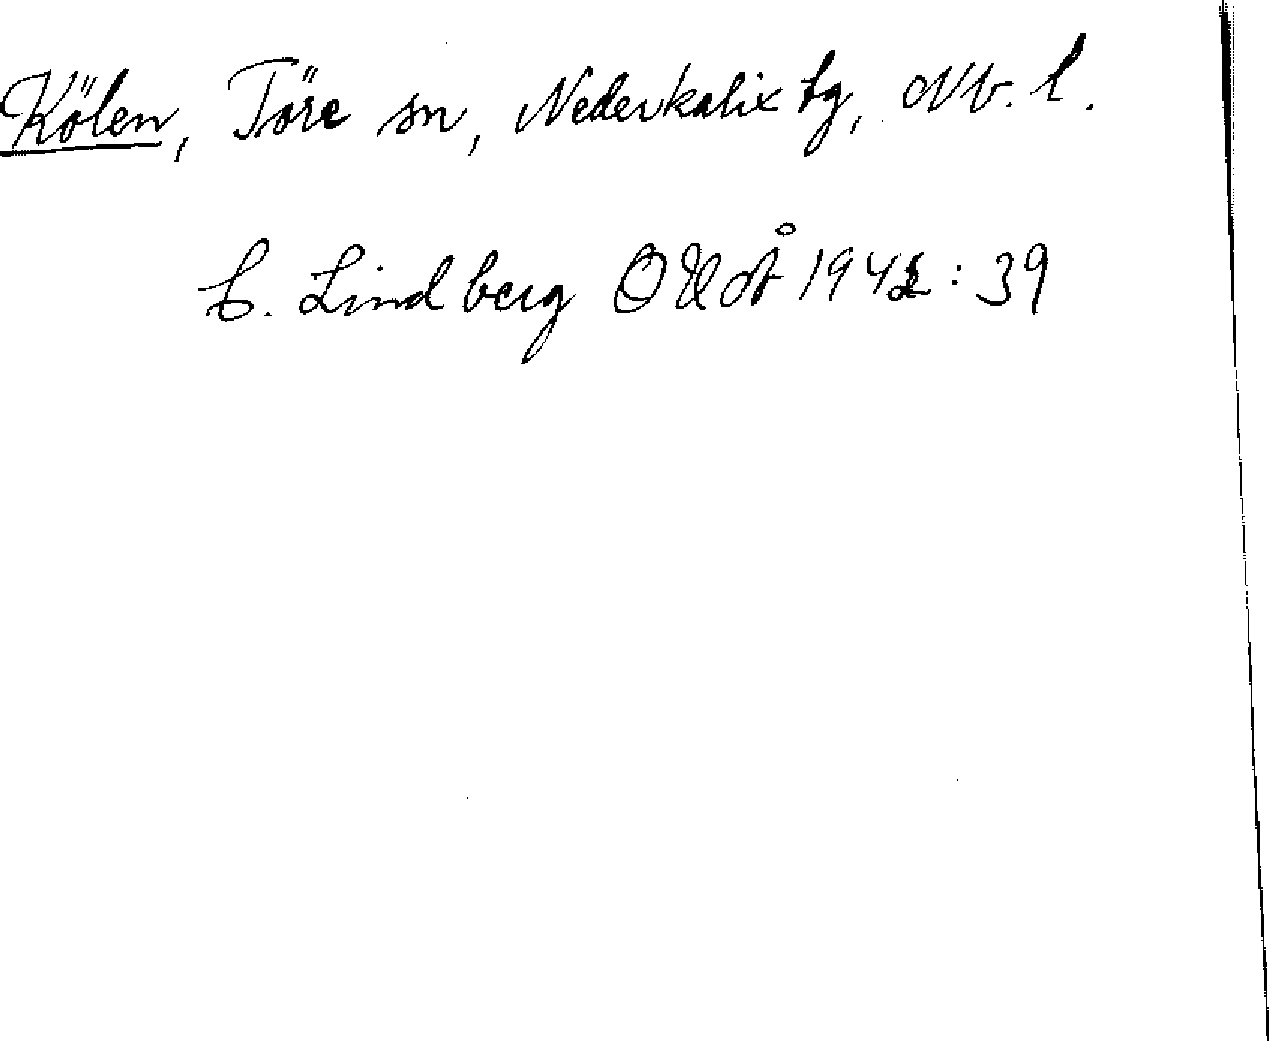 Kölen, Töre sn, Nederkalix tg, Nb. l.
C. Lindberg OUÅ 1942:39